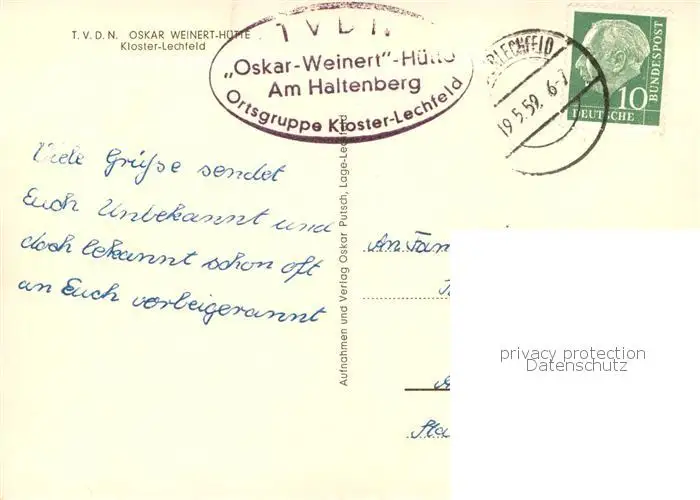 T. V. D. N. OSKAR WEINERT-HÜTTE
Kloster-Lechfeld
T V D N
„Oskar-Weinert"-Hütte
Am Haltenberg
Ortsgruppe Kloster-Lechfeld
LECHFELD
19.5.59. 6-7
10
DEUTSCHE
BUNDESPOST
Viele Grüße sendet
Euch Unbekannt und
doch bekannt schon oft
an Euch vorbeigerannt
Aufnahmen und Verlag Oskar Putsch, Lage-Lechfeld
An Fam
privacy protection
Datenschutz